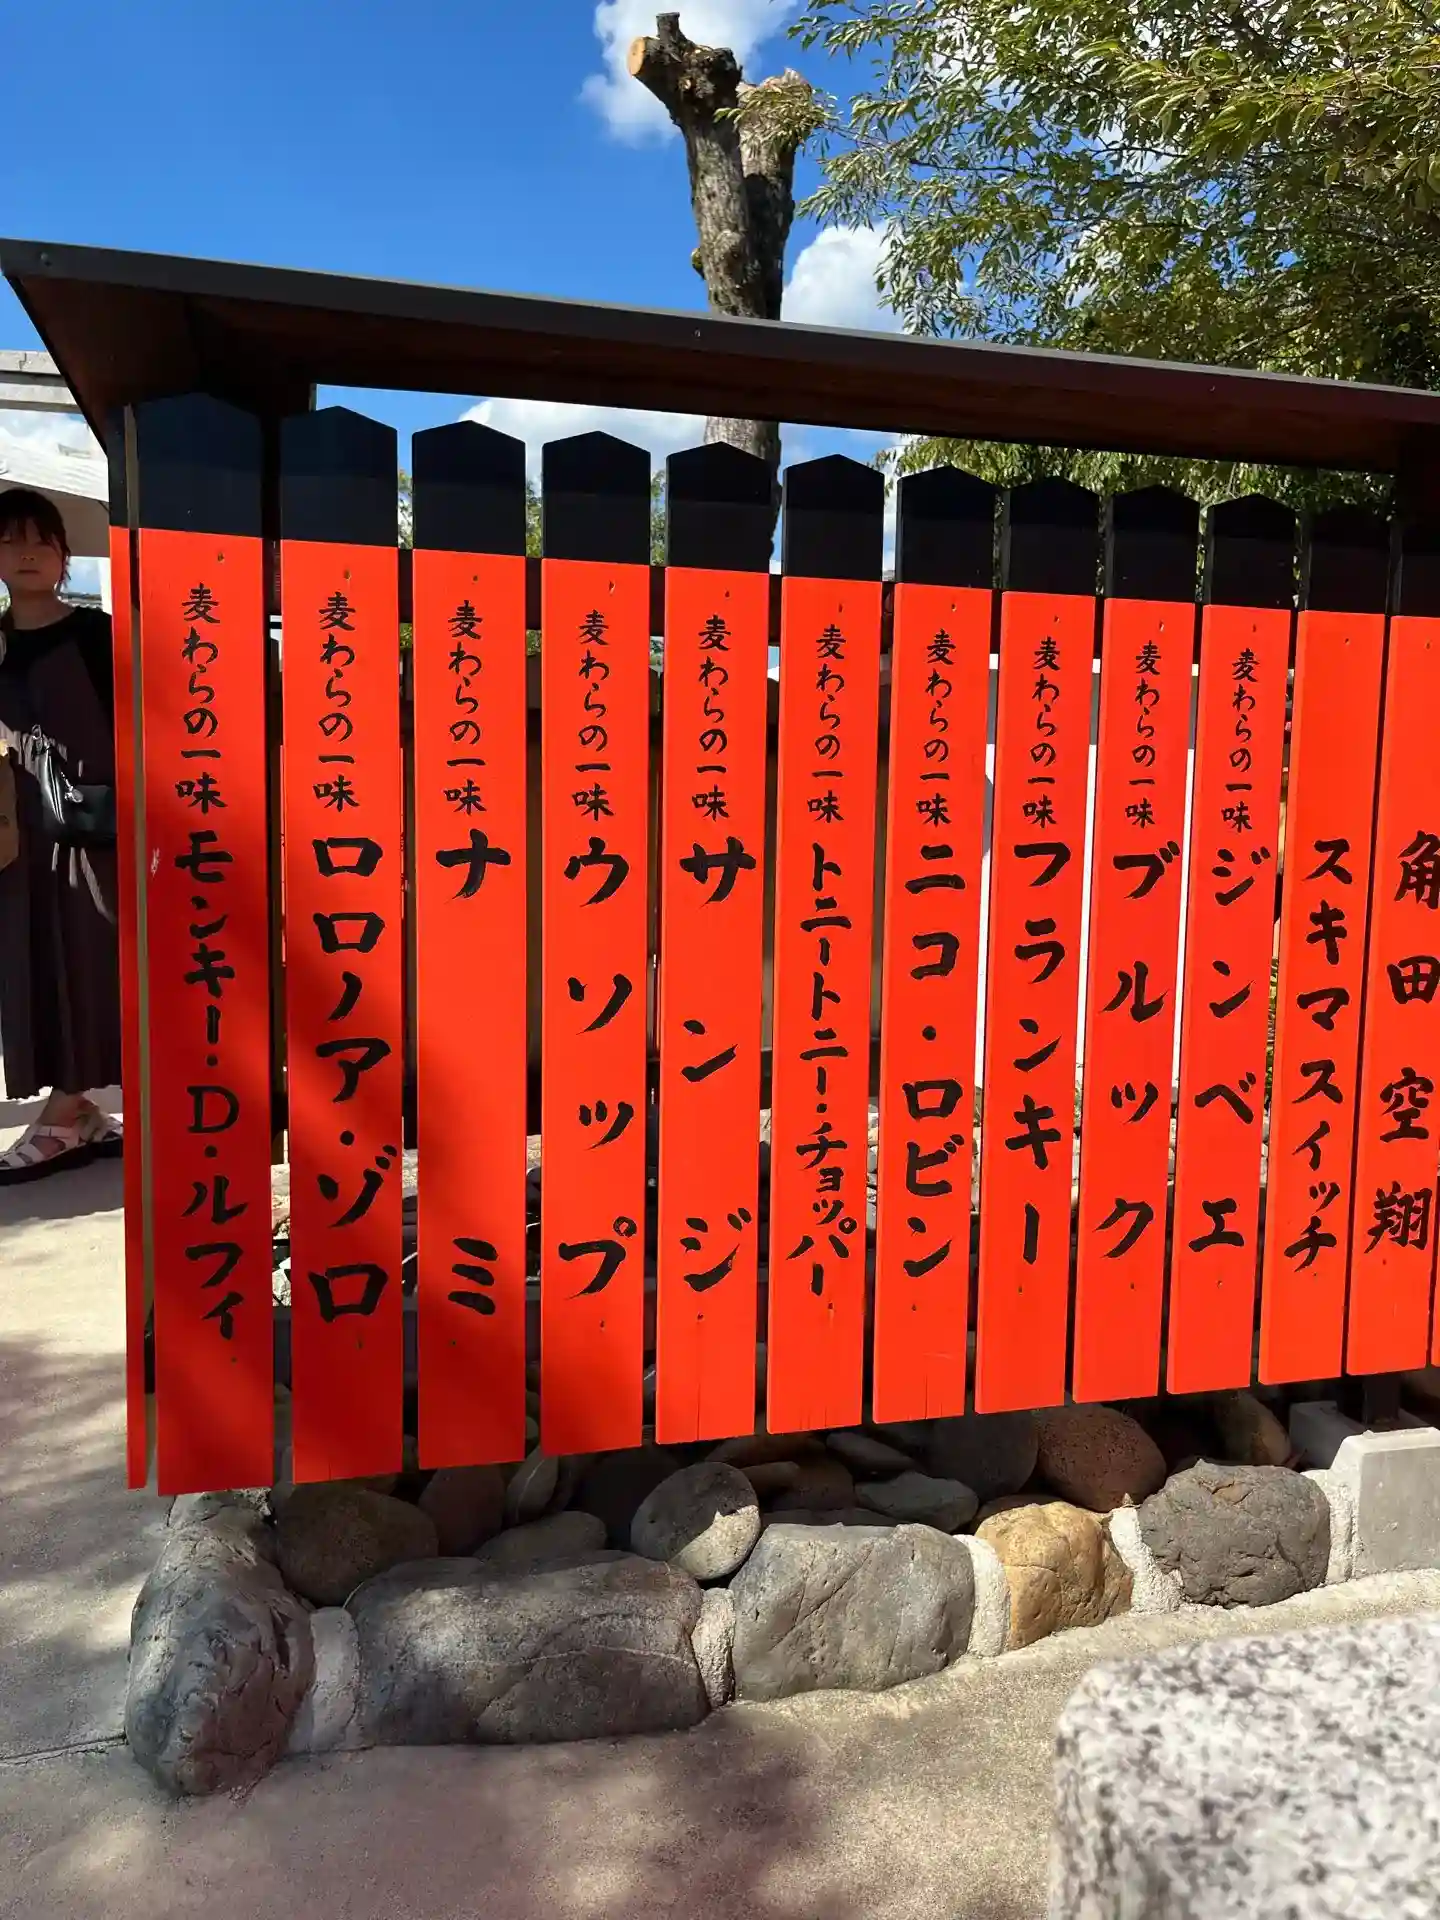 麦わらの一味 モンキー・D・ルフィ
麦わらの一味 ロロノア・ゾロ
麦わらの一味 ナミ
麦わらの一味 ウソップ
麦わらの一味 サンジ
麦わらの一味 トニートニー・チョッパー
麦わらの一味 ニコ・ロビン
麦わらの一味 フランキー
麦わらの一味 ブルック
麦わらの一味 ジンベエ
スキマスイッチ
角田空翔